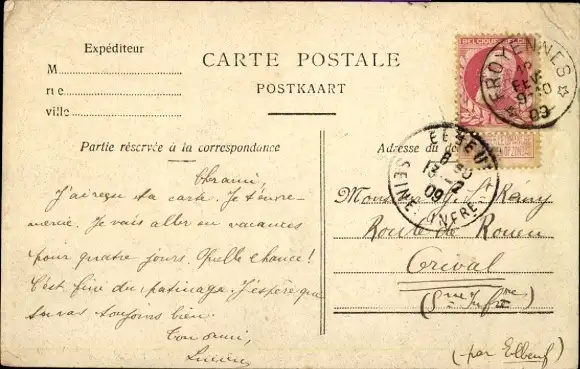 Expéditeur
M
rue
ville
CARTE POSTALE
POSTKAART
Partie réservée à la correspondance
Adresse du de
BELGIQUE
FROYENNES
12
FEV
09
ELBEUF
8 50
13 - 2
09
SEINE INFRE
J'ai reçu ta carte. Je t'en re-
mercie. Je vais aller en vacances
pour quatre jours. Quelle chance!
C'est fini du patinage. J'espère que
tu vas toujours bien.
Ton ami,
Lucien
Monsieur St Remy
Route de Rouen
Orival
(Sne Infre)
(par Elbeuf)